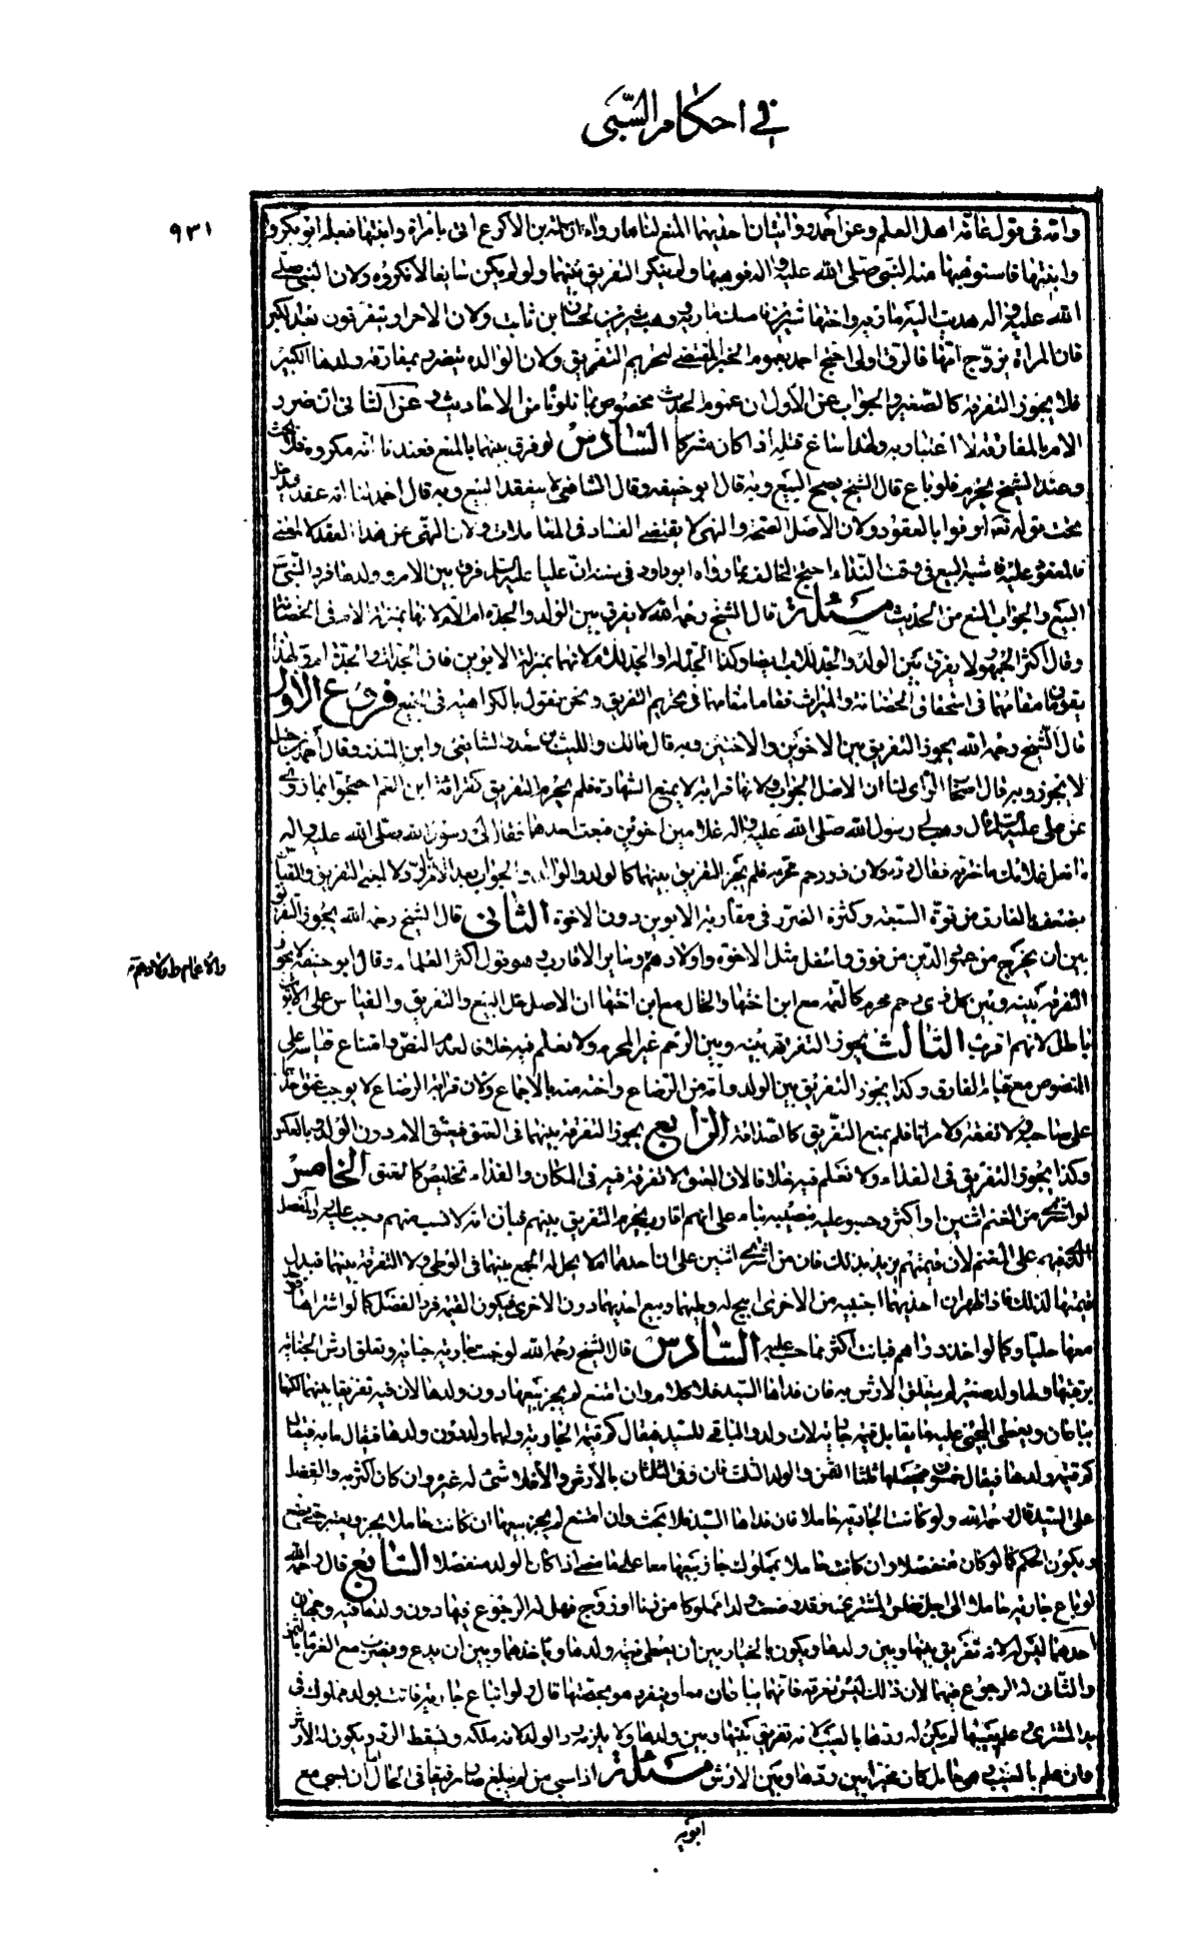 في احكام السّبى
٩٣١
وامّه في قول عامّة اهل العلم وعن احمد روايتان احديهما المنع لنا ما رواه سلمة بن الاكوع اتى بامرأة وابنتها فنفله ابو بكر
وابنتها فاستوهبها منه النبى صلّى الله عليه واله فوهبها ولم ينكر التفريق بينهما ولو لم يكن سايغا لانكروه ولان النبى صلّى
الله عليه واله هديت اليه مارية واختها شيرين فامسك مارية ووهب شيرين لحسان بن ثابت ولان الاحرار يتفرّقون بعد الكبر
فان المراة يزوّج ابنتها فالرق اولى احتج احمد بعموم الخبر المقتضى لتحريم التفريق ولان الوالدة يتضرر بمفارقة ولدها الكبير
فلا يجوز التفرقة كالصّغير والجواب عن الأول ان عموم الحديث مخصوص بما تلوناه من الاحاديث وعن الثانى ان ضرر
الام بالمفارقة لا اعتبار به ولهذا ساغ قتله اذا كان مشركا السّادس لو فرق بينهما بالبيع فعندنا انه مكروه فلا بحث
وعند الشيخ يحرم فلو باع قال الشيخ يصح البيع وبه قال ابو حنيفه وقال الشافعى لا ينعقد البيع وبه قال احمد لنا انه عقد
تحت قوله تعالى اوفوا بالعقود ولان الاصل الصحة والنهى لا يقتضى الفساد فى المعاملات ولان النهى عن هذا العقد لا لمعنى
فالمعقود عليه فاشبه البيع فى وقت النداء احتج المخالف بما رواه ابو داود فى سننه انّ عليا عليه السلم فرق بين الام وولدها فرد النبى
البيع والجواب المنع من الحديث مسئلة قال الشيخ رحمه الله لا يفرق بين الولد والجدة ام الام لانها بمنزلة الام فى الحضانة
وقال اكثر الجمهور لا يفرق بين الولد والجد لذلك ايضا وكذا الجدة للاب والجد له لانهما بمنزلة الابوين فان الجد اب والجدة ام ولهذا
يقومان مقامهما فى استحقاق الحضانة والميراث فقاما مقامهما فى تحريم التفريق ونحن نقول بالكراهيه فى الجميع فروع الأول
قال الشيخ رحمه الله يجوز التفريق بين الاخوين والاختين وبه قال مالك والليث بن سعد والشافعى وابن المنذر وقال احمد بن حنبل
لا يجوز وبه قال اصحاب الراى لنا ان الاصل الجواز ولانها قرابة لا يمنع الشهادة فلم يحرم التفريق كقرابة ابن العم احتجوا بما روى
عن على عليه السلم قال وهب لى رسول الله صلى الله عليه واله غلامين اخوين فبعت احدهما فقال لى رسول الله صلى الله عليه واله
ما فعل غلامك فاخبرته فقال رده ولان ذو رحم محرم فلم يجز التفريق بينهما كالولد والوالد والجواب بعد الاول ولا لمعنى التفريق والقياس
ضعيف الفارق من قوة السبعه وكثرة الضرر فى مفارقة الابوين دون الاخوة الثّانى قال الشيخ رحمه الله يجوز التفريق
بين ان يخرج من عمود الدين من فوق واسفل مثل الاخوة واولادهم وساير الاقارب وهو قول اكثر العلماء وقال ابو حنيفة لا يجوز
والاعمام واولادهم
التفرقة بينه وبين كل ذى رحم محرم كالعمة مع ابن اخيها والخال مع ابن اختها لنا ان الاصل حل البيع والتفريق والقياس على الابوين
باطل لانهم اقرب الثّالث يجوز التفرقة بينه وبين الرحم غير المحرم ولا نعلم فيه خلافا لعدم النص وامتناع قياسه على
المنصوص مع قيام الفارق وكذا يجوز التفريق بين الولد وامه من الرضاع واخته منه بالاجماع ولان قرابة الرضاع لا يوجب عتق احدهما
على صاحبه ولا نفقة ولا ميراثا فلم يمنع التفريق كالصداقة الرّابع يجوز التفرقة بينهما فى العتق فيعتق الام دون الولد وبالعكس
وكذا يجوز التفريق فى الفداء ولا نعلم فيه خلافا لان العتق لا تفرقة فيه فى المكان والفداء تخليص كالعتق الخامس
لو اشترى من الغنم اثنين او اكثر وحسبوا عليه بنصيبه بناء على انهم اقارب يحرم التفريق بينهم فبان انه لا نسب بينهم وجب عليه رد الفضل
الذى فيهم على المغنم لان قيمتهم يزيد بذلك فان من اشترى اثنين على ان احدهما ام الاخرى لا يحل له الجمع بينهما فى الوطى ولا التفرقة بينهما فيقل
قيمتهما لذلك فاذا ظهر ان احديهما اجنبية من الاخرى ابيح له وطيهما وبيع احديهما دون الاخرى فيكون القيمة فرد الفضل كما لو اشتراها فوجد
معها حليا وكما لو اخذ دراهم فبانت اكثر مما حسب عليه السّادس قال الشيخ رحمه الله لو جنت جارية جناية وتعلق ارش الجناية
برقبتها ولها ولد صغير لم يتعلق الارش به فان فداها السيد فلا كلام وان امتنع لم يجز بيعها دون ولدها لان فيه تفريقا بينهما لكنهما
يباعان ويعطى المجنى عليه ما يقابل قيمة جارية ذات ولد والباقى للسيد فيقال كم قيمة الجارية ولها ولد دون ولدها فيقال ماية فيقال
كم قيمة ولدها فيقال خمسون فيحصلها ثلثا الثمن والولد الثلث فان وفى الثلثان بالارش والا فلا شىء له غيره وان كان اكثر رد الفضل
على السيد قال رحمه الله ولو كانت الجارية حاملا فان فداها السيد فلا بحث وان امتنع لم يجز بيعها ان كانت حاملا بحر ويصبر حتى تضع
ويكون الحكم كما لو كان منفصلا وان كانت حاملا بمملوك جاز بيعها معا على ما مضى اذا كان الولد منفصلا السّابع قال رحمه الله
لو باع جارية حاملا الى اجل ففلس المشترى وقد وضعت ولدا مملوكا من زنا او زوج فهل له الرجوع فيها دون ولدها فيه وجهان
احدهما ليس له لانه تفريق بينها وبين ولدها ويكون بالخيار بين ان يعطى قيمة ولدها وياخذهما وبين ان يدع ويضرب مع الغرماء بالثمن
والثانى له الرجوع فيهما لان ذلك ليس تفرقة فانهما يباعان معا وينفرد هو بحصتها قال ولو ابتاع جارية فاتت بولد مملوك فى
يد المشترى وعلم بعيبها لم يكن له ردها بالعيب لانه تفريق بينها وبين ولدها ولا يلزمه رد الولد لانه ملكه ويسقط الرد ويكون له الارش
فان علم بالعيب وهى حامل كان مخيرا بين ردها وبين الارش مسئلة اذا سبى من لم يبلغ صار رقيقا فى الحال ان سبى مع
ابويه